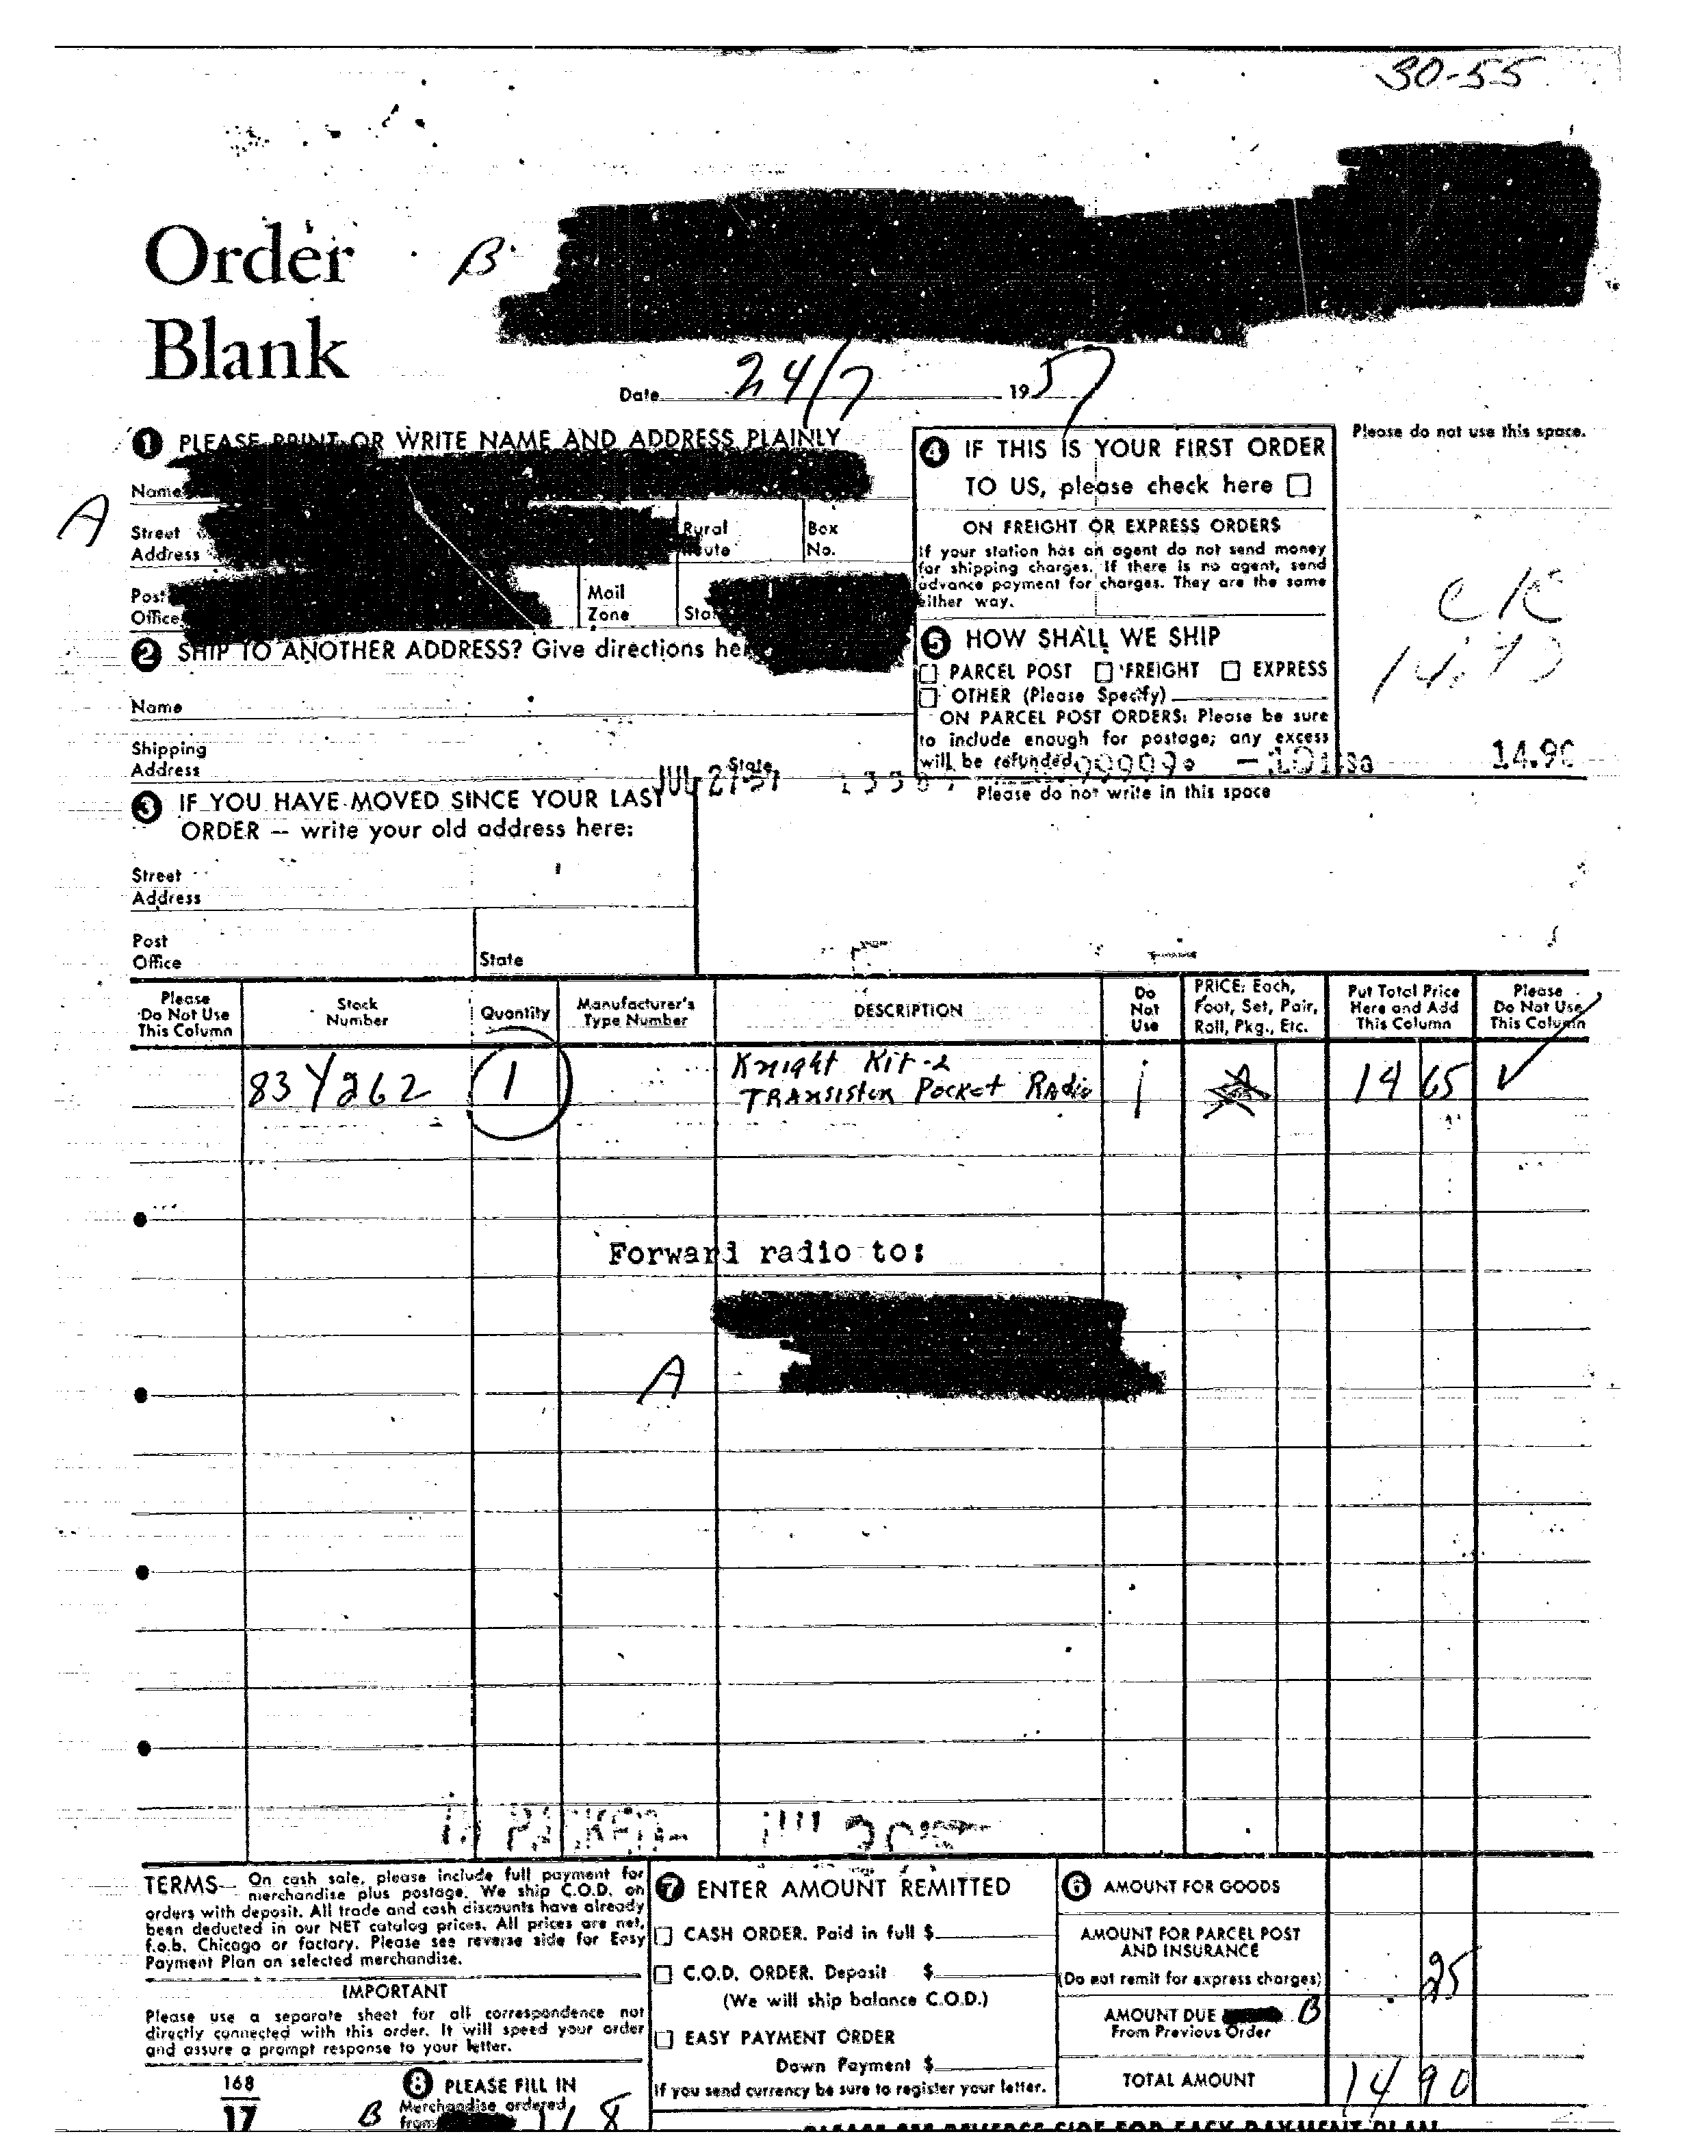 30-55
Order
Blank
B
Date 24/7 1957
1 PLEASE PRINT OR WRITE NAME AND ADDRESS PLAINLY
A
Name
Street
Address
Rural
Route
Box
No.
Post
Office
Mail
Zone
2 SHIP TO ANOTHER ADDRESS? Give directions
Name
Shipping
Address
State
JUL 27 57
3 IF YOU HAVE MOVED SINCE YOUR LAST
ORDER -- write your old address here:
Street
Address
Post
Office
State
4 IF THIS IS YOUR FIRST ORDER
TO US, please check here
ON FREIGHT OR EXPRESS ORDERS
If your station has an agent do not send money
for shipping charges. If there is no agent, send
advance payment for charges. They are the same
either way.
5 HOW SHALL WE SHIP
PARCEL POST FREIGHT EXPRESS
OTHER (Please Specify)
ON PARCEL POST ORDERS: Please be sure
to include enough for postage; any excess
will be refunded
Please do not write in this space
Please do not use this space.
ck
14.90
Please
Do Not Use
This Column
Stock
Number
Quantity
Manufacturer's
Type Number
DESCRIPTION
Do
Not
Use
PRICE: Each,
Foot, Set, Pair,
Roll, Pkg., Etc.
Put Total Price
Here and Add
This Column
Please
Do Not Use
This Column
83Y262 1 Knight Kit-2 14 65
TRANsistor Pocket Radio
Forward radio to:
A
TERMS-- On cash sale, please include full payment for
merchandise plus postage. We ship C.O.D. on
orders with deposit. All trade and cash discounts have already
been deducted in our NET catalog prices. All prices are net,
f.o.b. Chicago or factory. Please see reverse side for Easy
Payment Plan on selected merchandise.
IMPORTANT
Please use a separate sheet for all correspondence not
directly connected with this order. It will speed your order
and assure a prompt response to your letter.
168
17
8 PLEASE FILL IN
Merchandise ordered
from
B
7 ENTER AMOUNT REMITTED
CASH ORDER. Paid in full $
C.O.D. ORDER. Deposit $
(We will ship balance C.O.D.)
EASY PAYMENT ORDER
Down Payment $
If you send currency be sure to register your letter.
6 AMOUNT FOR GOODS
AMOUNT FOR PARCEL POST
AND INSURANCE
(Do not remit for express charges) 25
AMOUNT DUE B
From Previous Order
TOTAL AMOUNT 14 90
PLEASE SEE REVERSE SIDE FOR EASY PAYMENT PLAN